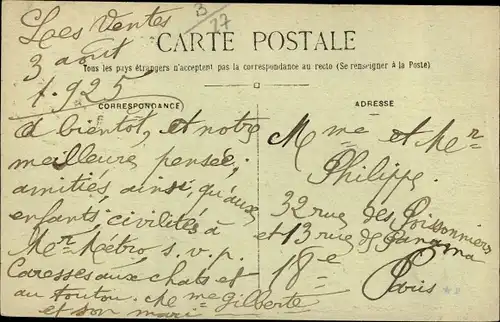 Les Ventes
3 août
1925
3/27
CARTE POSTALE
Tous les pays étrangers n'acceptent pas la correspondance au recto (Se renseigner à la Poste)
CORRESPONDANCE
à bientôt, et notre
meilleure pensée,
amitiés ainsi qu'aux
enfants, civilités à
Mer Metro s.v.p.
Caresses aux chats et
au toutou. Me me Gilberte
et son mari
ADRESSE
Mme et Mer
Philippe
32 rue des Poissonniers
et 13 rue de Panama
18e
Paris